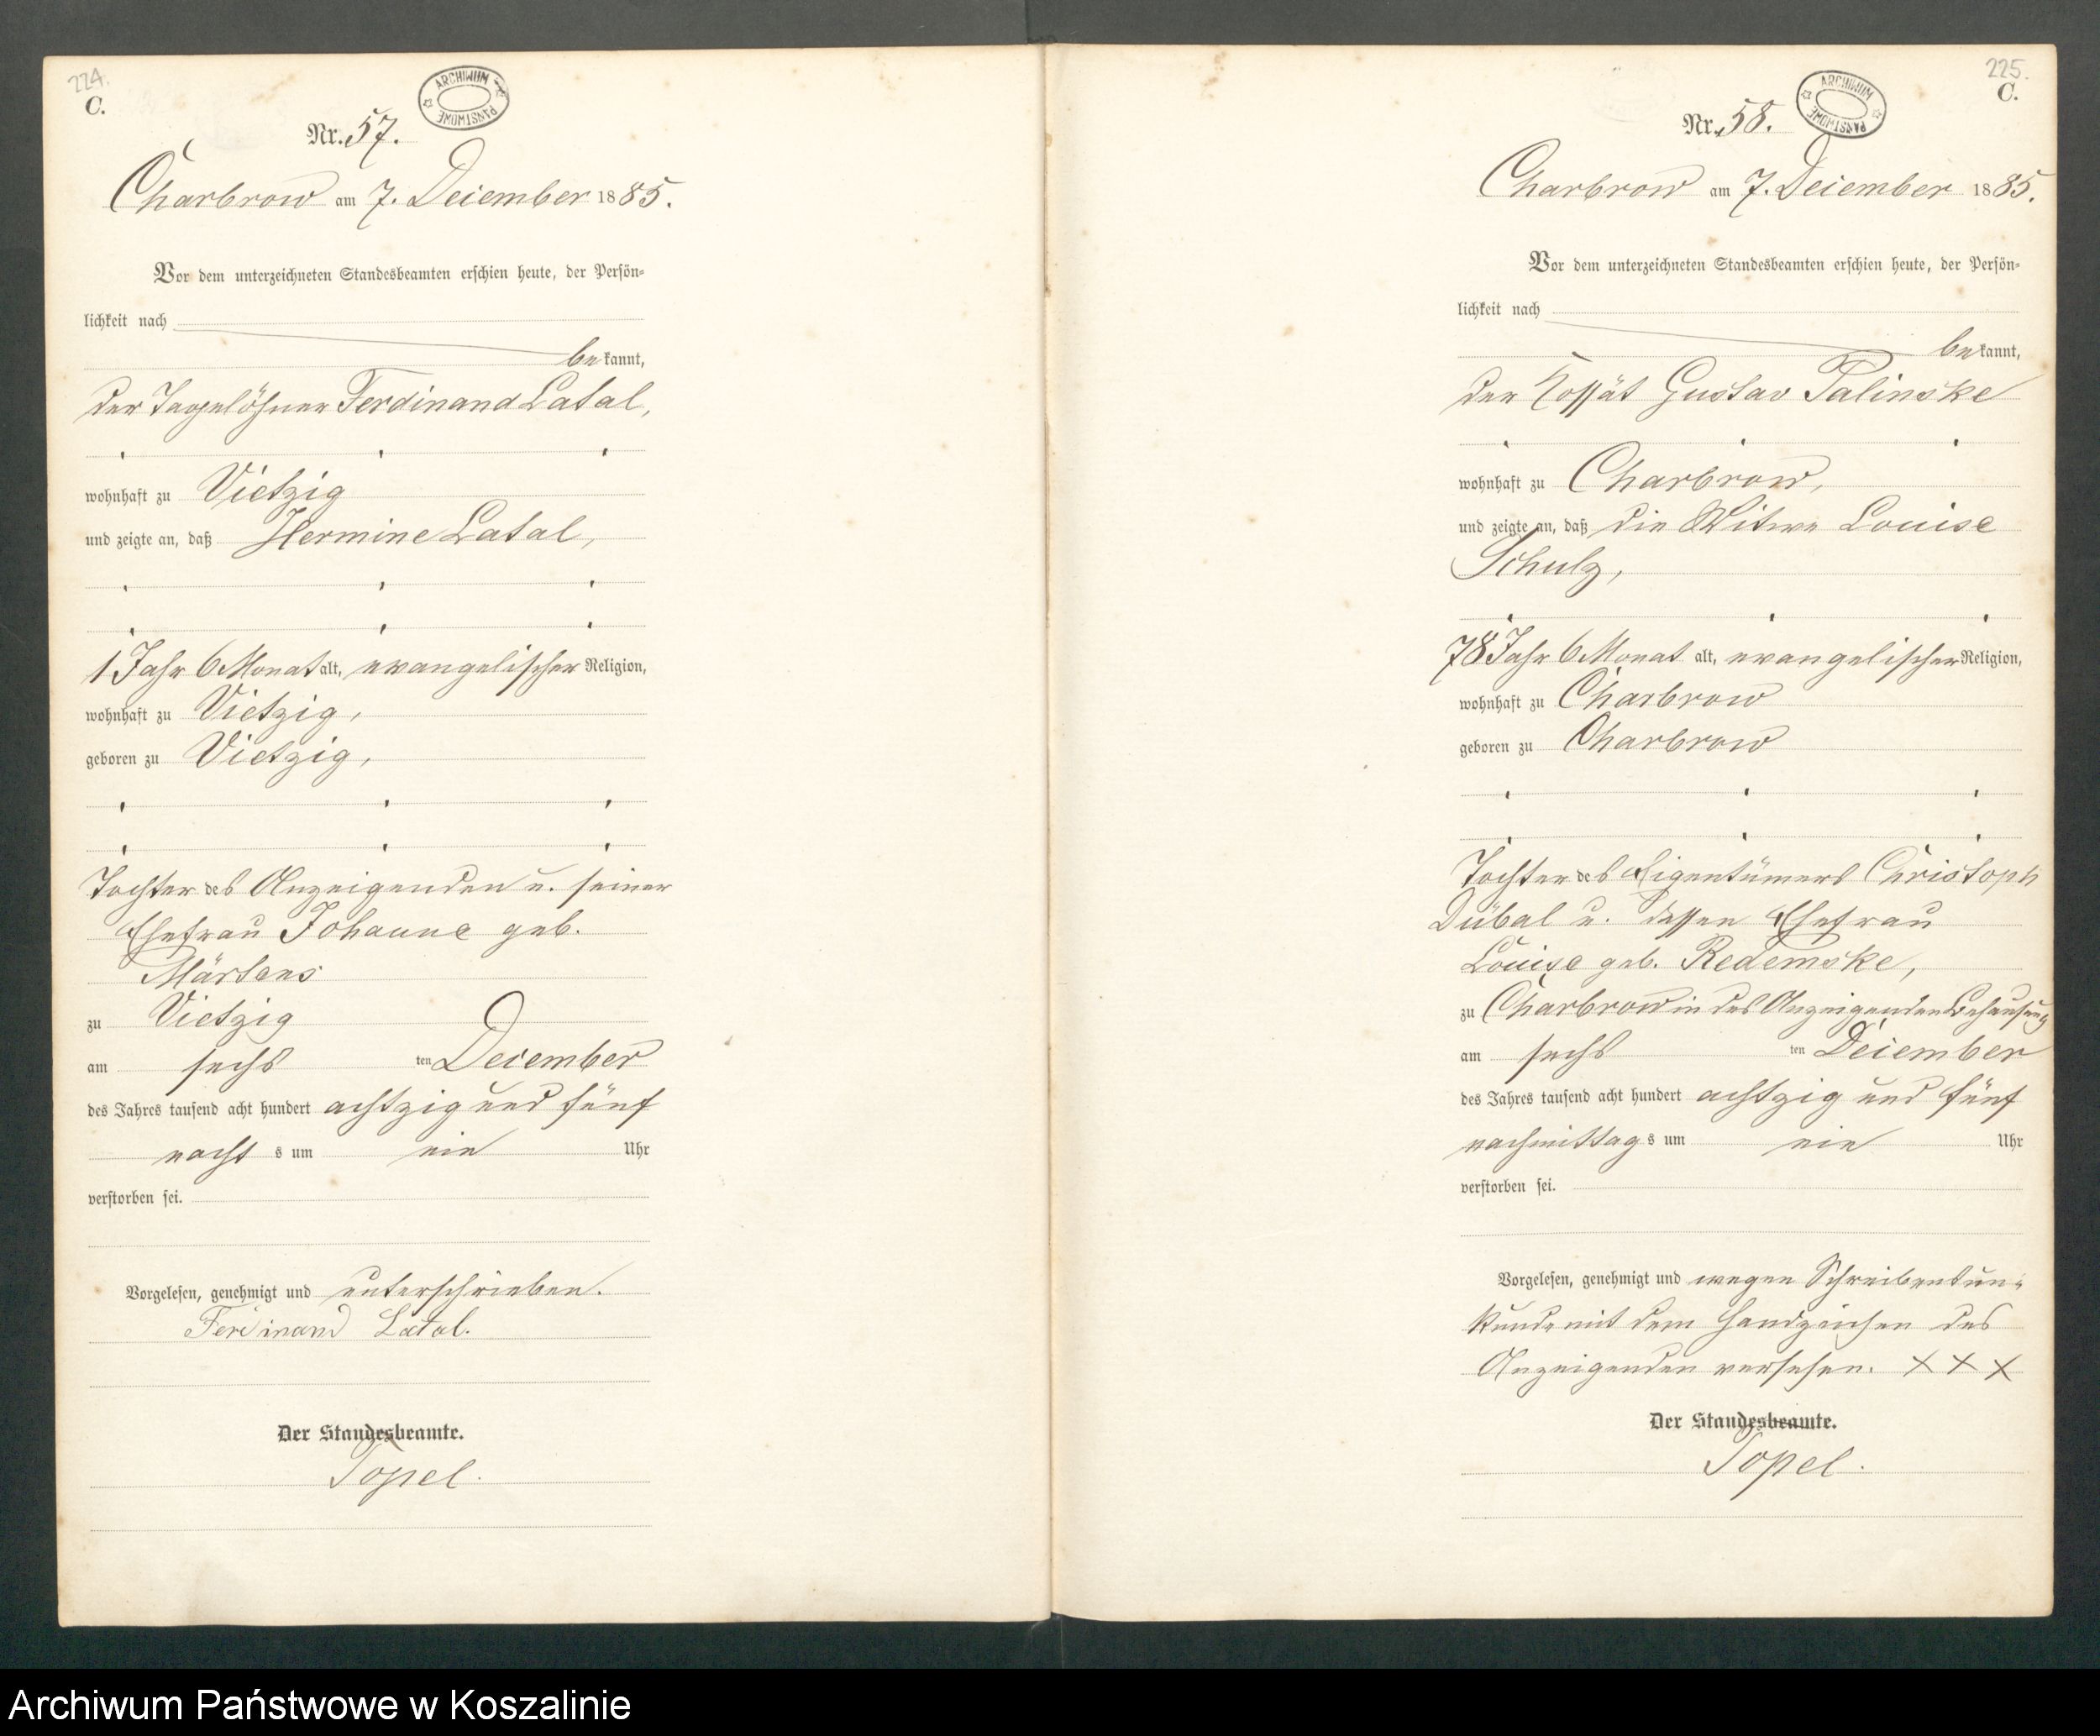 224.
C.
ARCHIWUM PAŃSTWOWE
Nr. 57.
Charbrow am 7. December 1885.
Vor dem unterzeichneten Standesbeamten erschien heute, der Persön-
lichkeit nach
bekannt,
der Tagelöhner Ferdinand Latal,
wohnhaft zu Vietzig
und zeigte an, daß Hermine Latal,
1 Jahr 6 Monat alt, evangelischer Religion,
wohnhaft zu Vietzig,
geboren zu Vietzig,
Tochter des Anzeigenden u. seiner
Ehefrau Johanne geb.
Märtens
zu Vietzig
am sechs ten December
des Jahres tausend acht hundert achtzig und fünf
nacht s um ein Uhr
verstorben sei.
Vorgelesen, genehmigt und unterschrieben.
Ferdinand Latal.
Der Standesbeamte.
Topel.
225.
C.
ARCHIWUM PAŃSTWOWE
Nr. 58.
Charbrow am 7. December 1885.
Vor dem unterzeichneten Standesbeamten erschien heute, der Persön-
lichkeit nach
bekannt,
der Kossät Gustav Palinske
wohnhaft zu Charbrow,
und zeigte an, daß die Witwe Louise
Schulz,
78 Jahr 6 Monat alt, evangelischer Religion,
wohnhaft zu Charbrow
geboren zu Charbrow
Tochter des Eigentümers Christoph
Dübal u. dessen Ehefrau
Louise geb. Redemske,
zu Charbrow in des Anzeigenden Behausung
am sechs ten December
des Jahres tausend acht hundert achtzig und fünf
nachmittag s um ein Uhr
verstorben sei.
Vorgelesen, genehmigt und wegen Schreibensun-
kunde mit dem Handzeichen des
Anzeigenden versehen. X X X
Der Standesbeamte.
Topel.
Archiwum Państwowe w Koszalinie